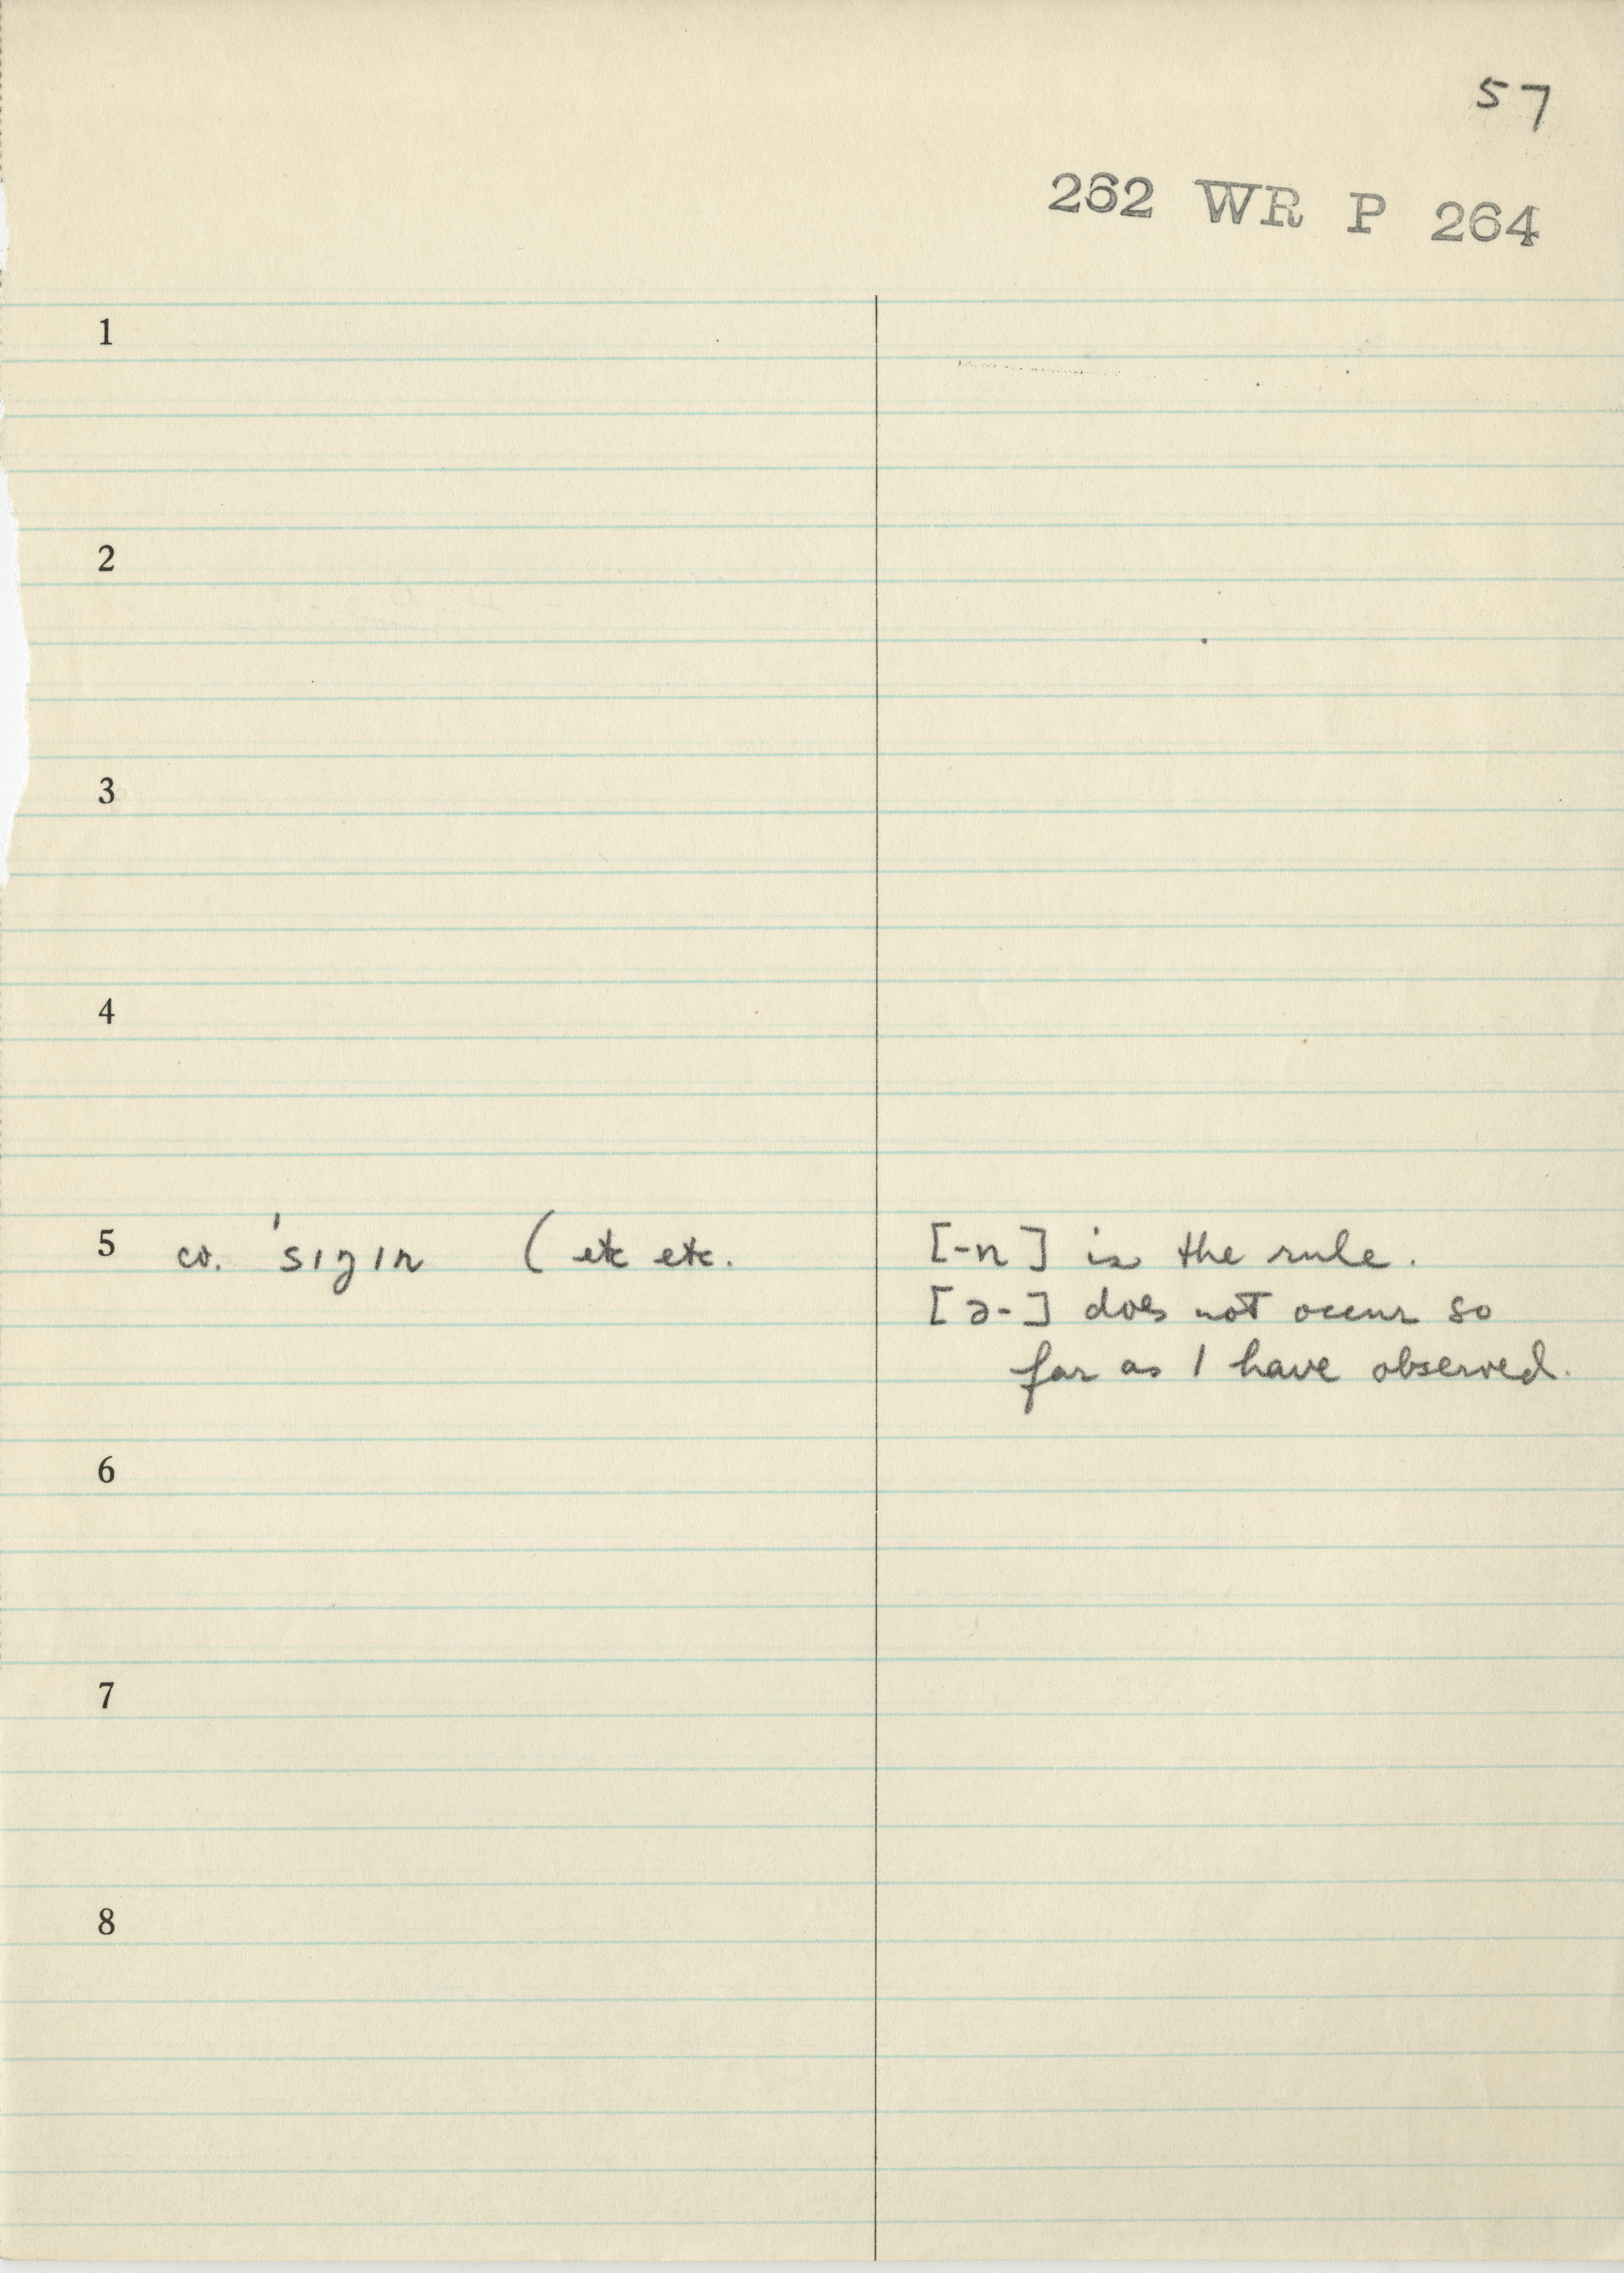 57
262 WR P 264
1
2
3
4
5 cv. 'sɪŋɪn (etc etc. [-n] is the rule.
[ə-] does not occur so
far as I have observed.
6
7
8